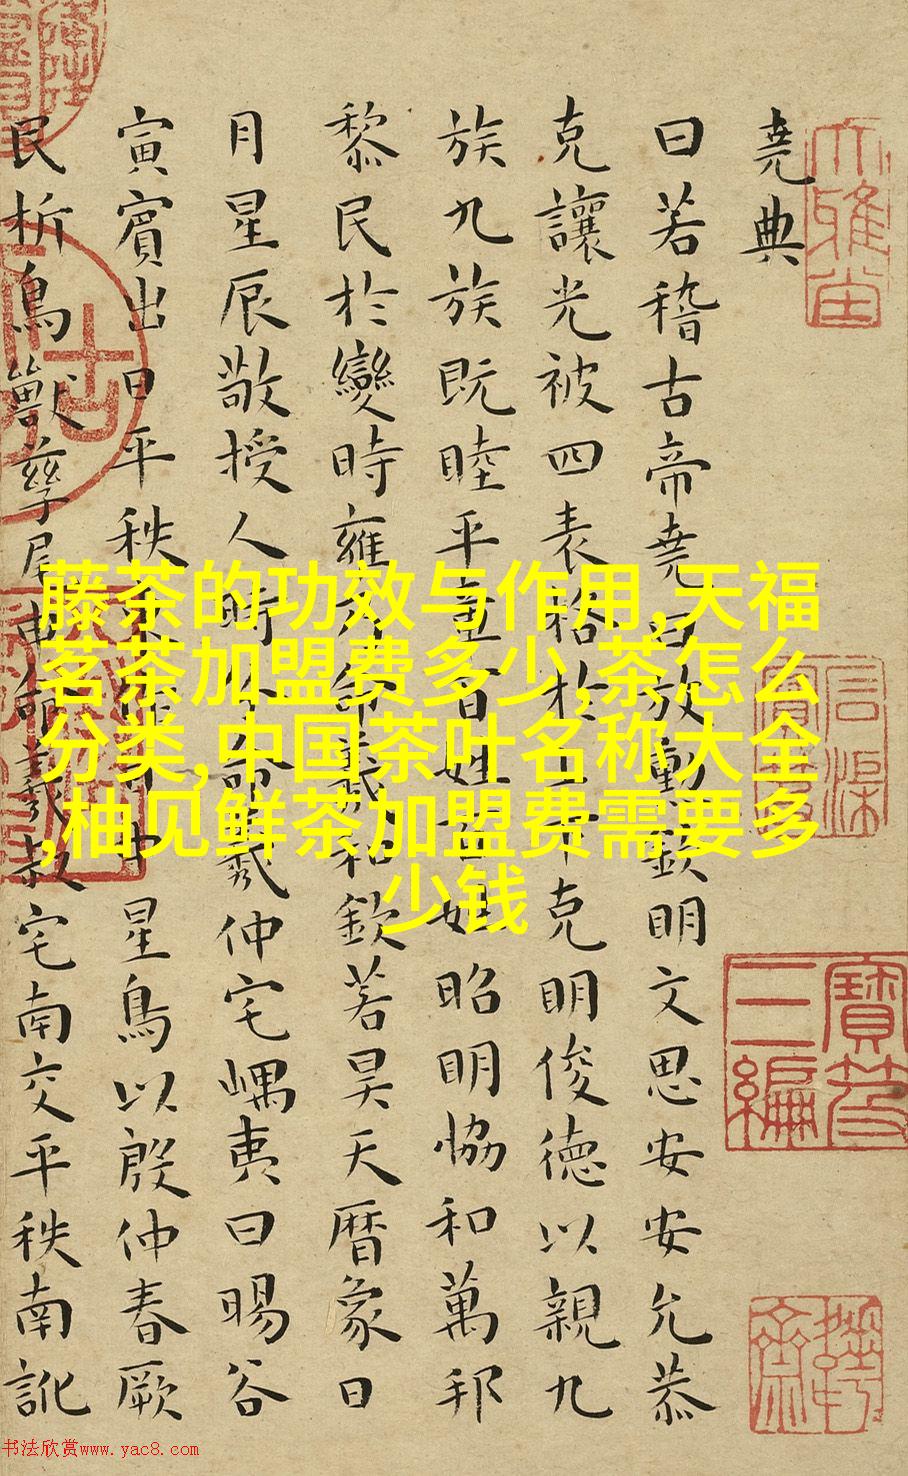 堯典
曰若稽古帝堯曰放勳欽明文思安安允恭
克讓光被四表格於上下克明俊德以親九
族九族既睦平章百姓百姓昭明恊和萬邦
黎民於變時雍乃命羲和欽若昊天曆象日
月星辰敬授人時分命羲仲宅嵎夷曰暘谷
寅賓出日平秩東作日中星鳥以殷仲春厥
民析鳥獸孳尾申命羲叔宅南交平秩南訛
藤茶的功效与作用,天福
茗茶加盟费多少,茶怎么
分类,中国茶叶名称大全
,柚见鲜茶加盟费需要多
少钱
寶笈
三編
书法欣赏www.yac8.com